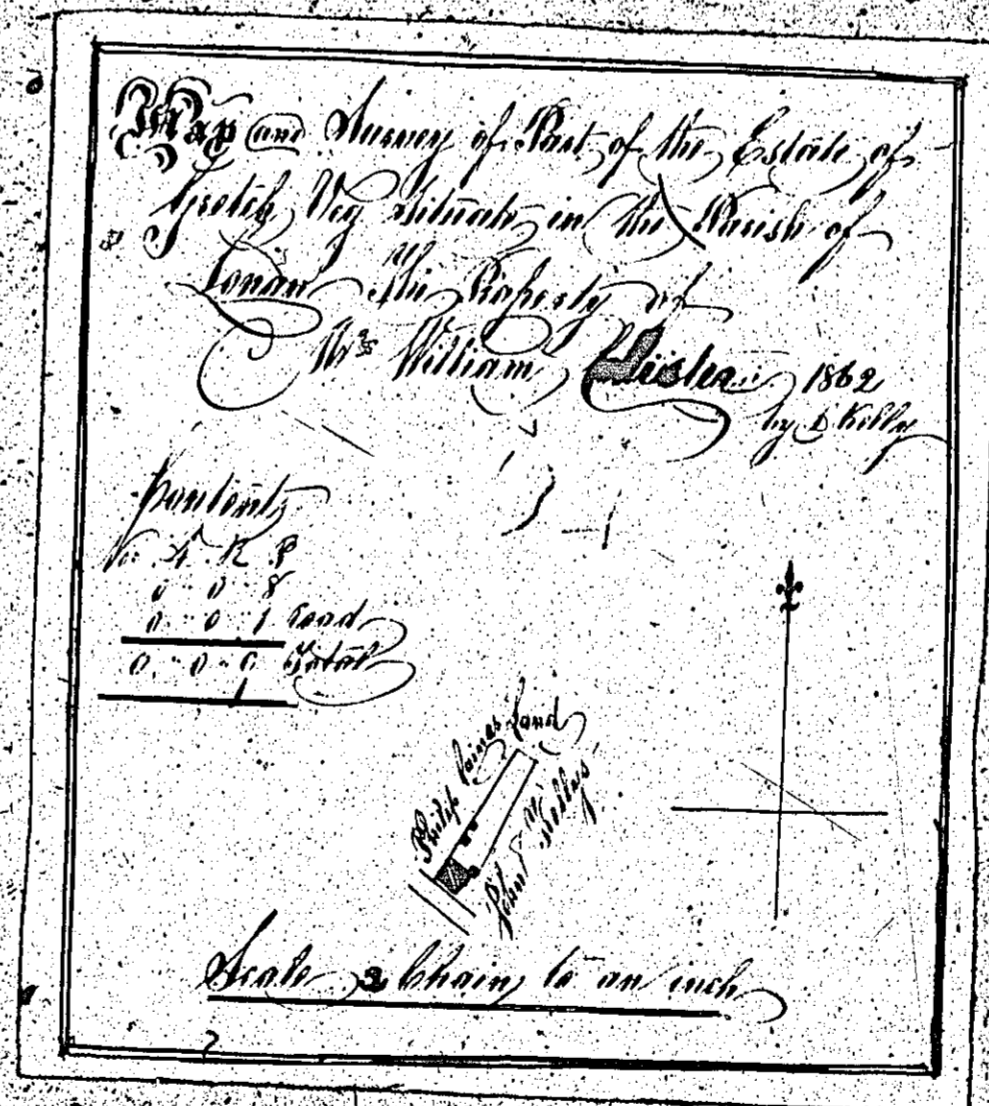 Map and Survey of Part of the Estate of
Gretch Veg situate in the Parish of
Lonan The Property of
Mr William 1862
by D Kelly
Contents
No. A. R. P.
0 0 8
0 0 1 Road
0 0 Total
Philip Caines Land
John Kellys
Scale 2 Chain to an inch